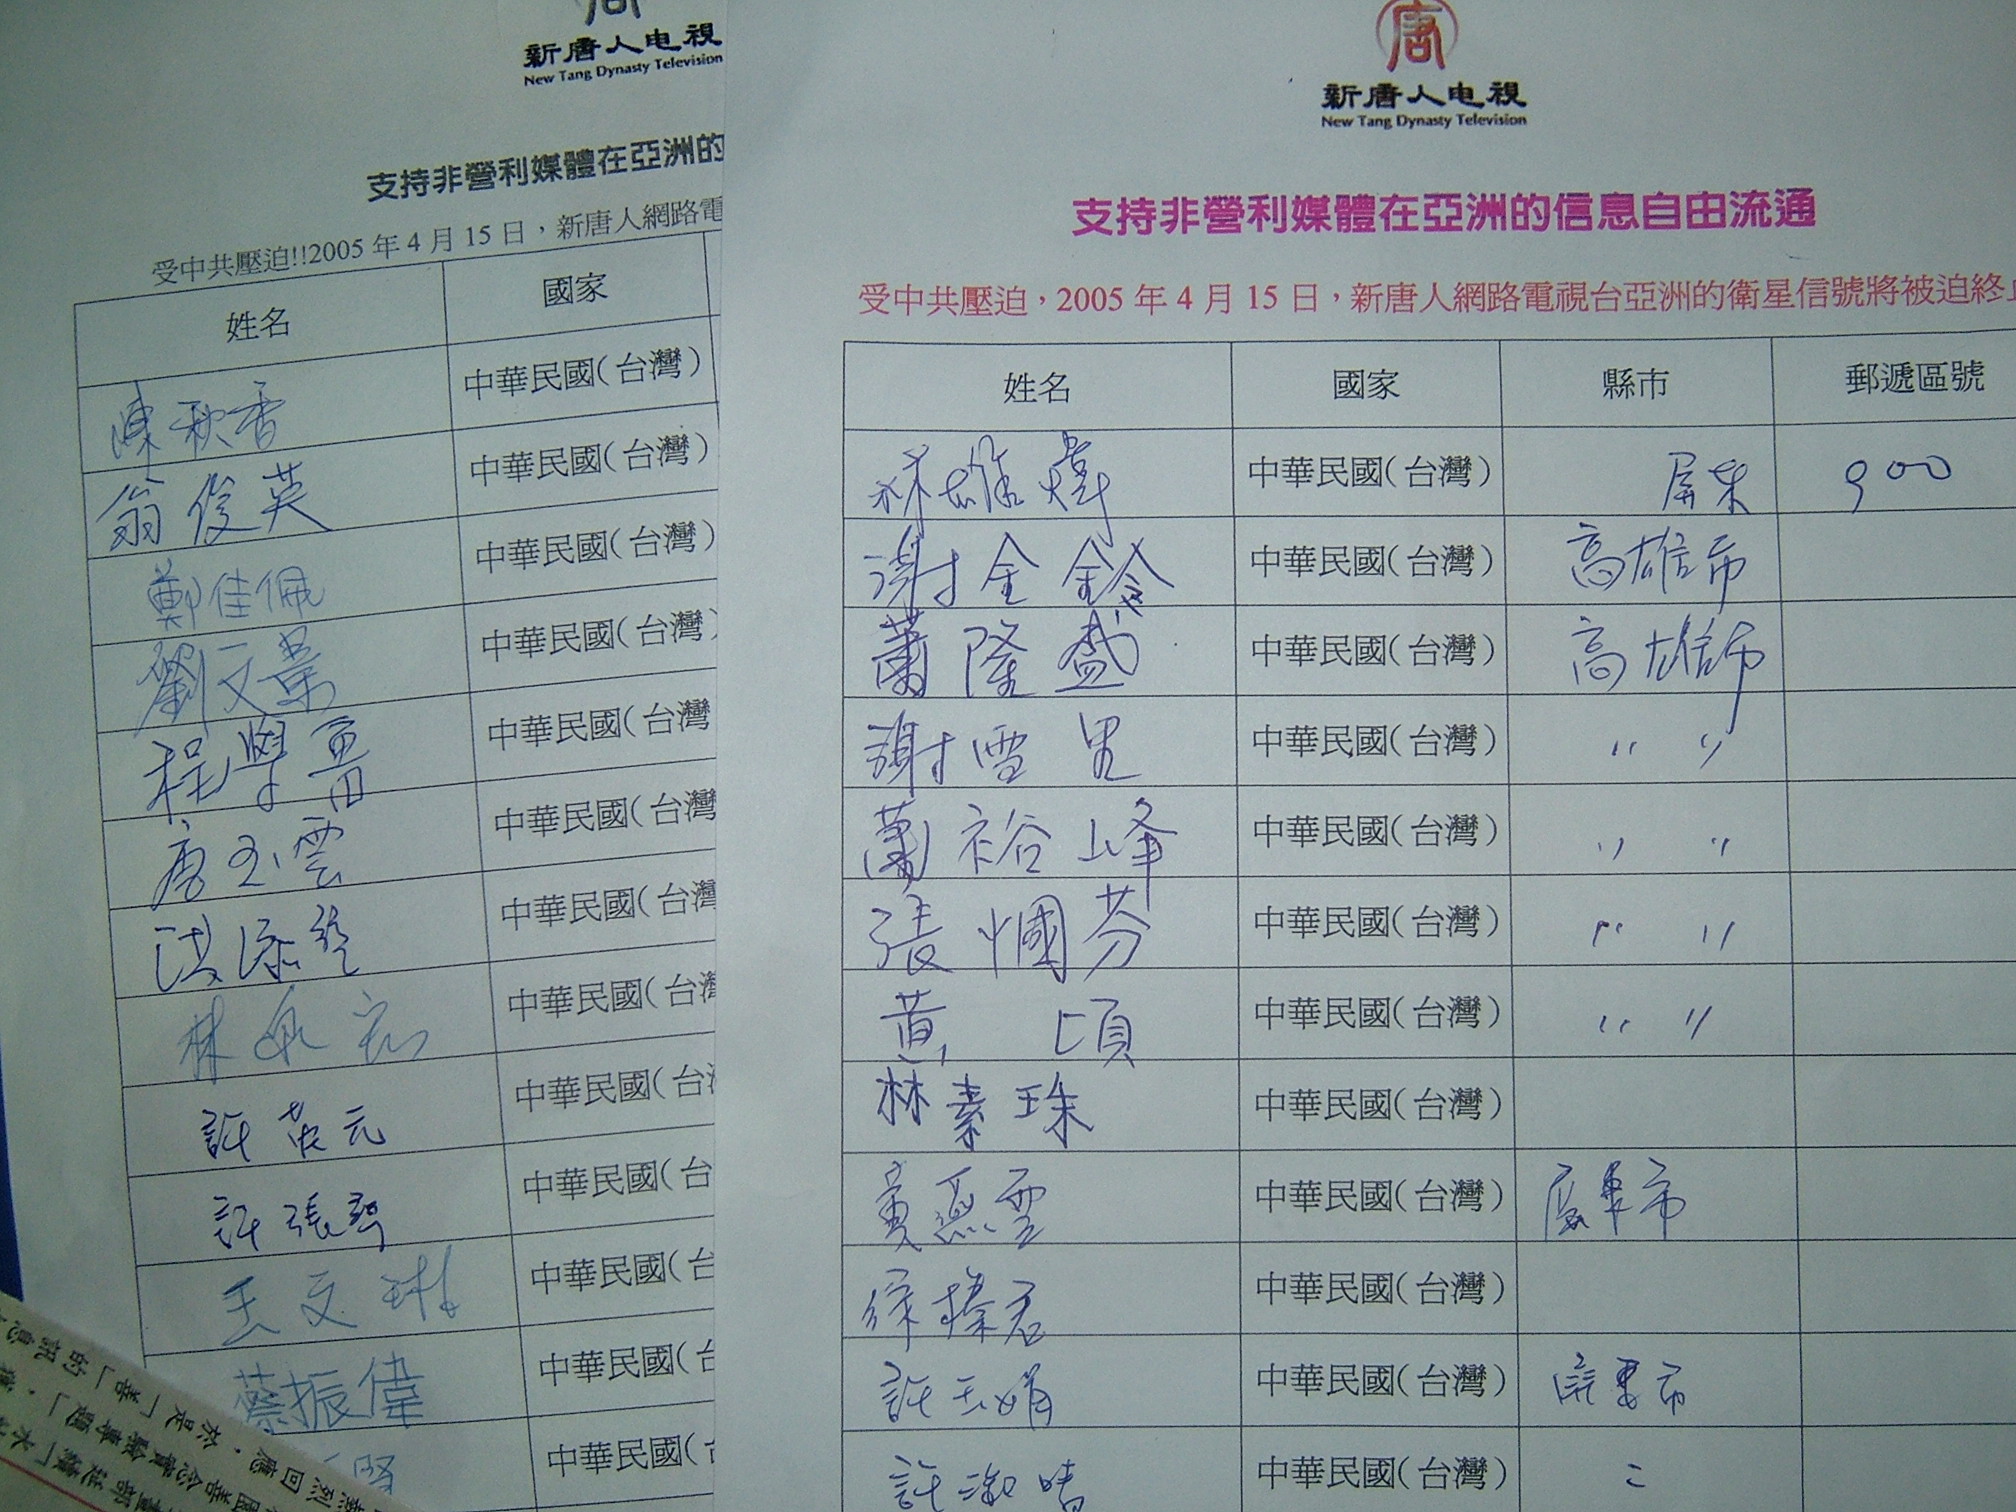 新唐人电視
New Tang Dynasty Television
支持非營利媒體在亞洲的
受中共壓迫!!2005 年 4 月 15 日，新唐人網路電
姓名 國家
陳秋香 中華民國(台灣)
翁俊英 中華民國(台灣)
鄭佳佩 中華民國(台灣)
劉文業 中華民國(台灣)
程學 中華民國(台灣
唐玉雲 中華民國(台灣
洪添 中華民國(台灣
林 中華民國(台灣
許英元 中華民國(台
許張 中華民國(台
王文琳 中華民國(台
蔡振偉 中華民國(台
賢 中華民國(
唐
新唐人电視
New Tang Dynasty Television
支持非營利媒體在亞洲的信息自由流通
受中共壓迫，2005 年 4 月 15 日，新唐人網路電視台亞洲的衛星信號將被迫終止
姓名 國家 縣市 郵遞區號
林雄煒 中華民國(台灣) 屏東 900
謝金鈴 中華民國(台灣) 高雄市
蕭隆盛 中華民國(台灣) 高雄市
謝雪 中華民國(台灣) 〃 〃
蕭裕峰 中華民國(台灣) 〃 〃
張慖芬 中華民國(台灣) 〃 〃
黃頃 中華民國(台灣) 〃 〃
林素珠 中華民國(台灣)
黃燕雲 中華民國(台灣) 屏東市
徐榛君 中華民國(台灣)
許玉娟 中華民國(台灣) 屏東市
許淑 中華民國(台灣)